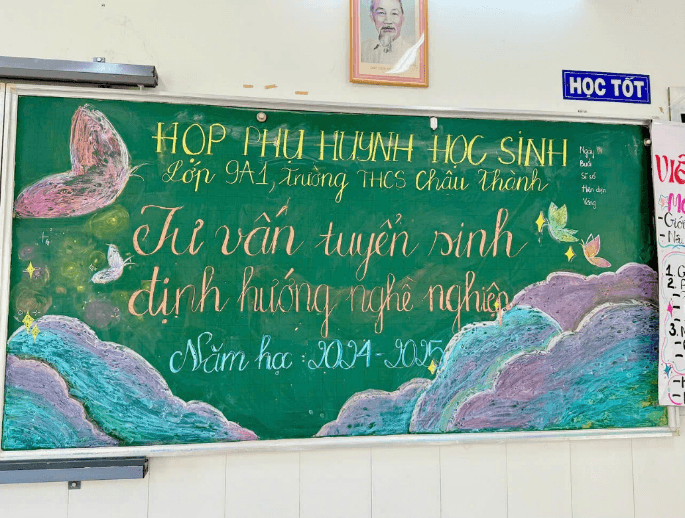 HỌC TỐT
HỌP PHỤ HUYNH HỌC SINH
Lớp 9A1, Trường THCS Châu Thành
Tư vấn tuyển sinh
định hướng nghề nghiệp
Năm học : 2024 - 2025
Ngày
Buổi
Sĩ số
Hiện diện
Vắng
1.
2.
3.